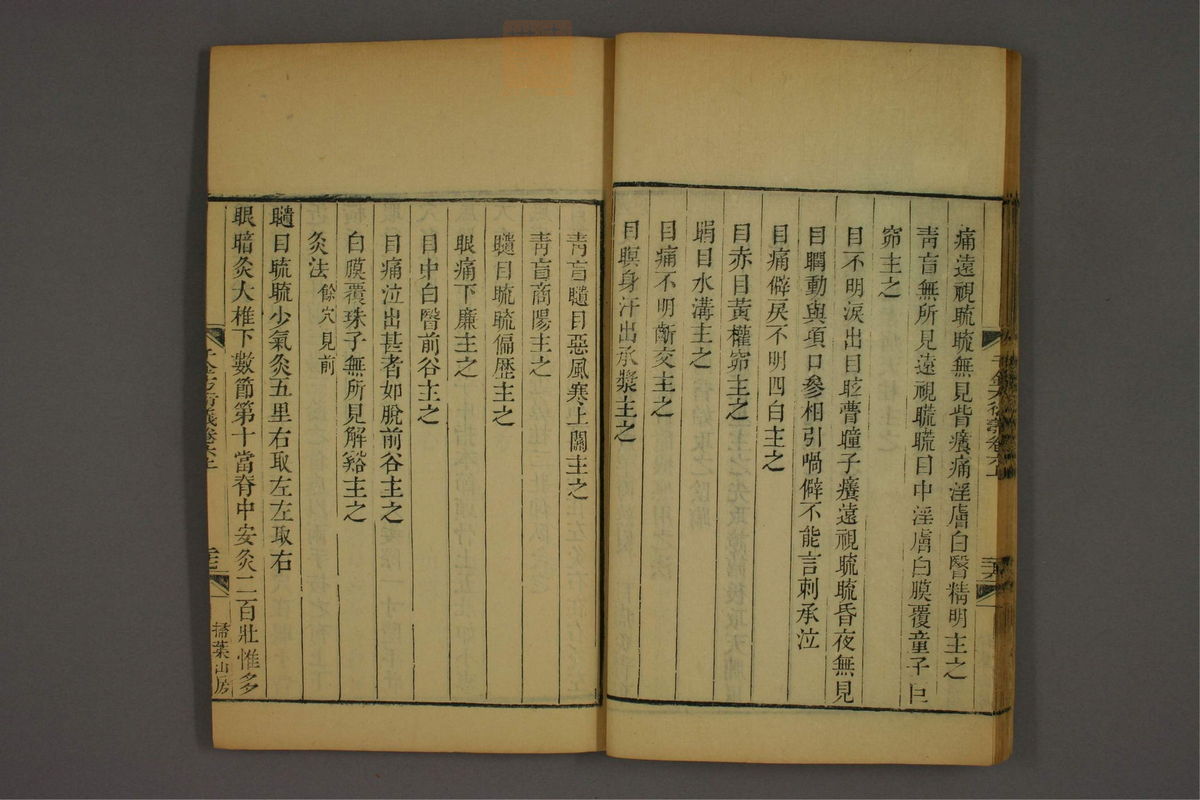 痛遠視䀮䀮無見眥癢痛淫膚白翳精明主之
靑盲無所見遠視䀮䀮目中淫膚白膜覆童子巨
窌主之
目不明淚出目眩瞢瞳子癢遠視䀮䀮昏夜無見
目瞤動與項口參相引喎僻不能言刺承泣
目痛僻戾不明四白主之
目赤目黃權窌主之
睊目水溝主之
目痛不明齗交主之
目瞑身汗出承漿主之
靑盲䁾目惡風寒上關主之
靑盲商陽主之
䁾目䀮䀮偏歴主之
眼痛下廉主之
目中白翳前谷主之
目痛泣出甚者如脫前谷主之
白膜覆珠子無所見解谿主之
灸法 餘穴見前
䁾目䀮䀮少氣灸五里右取左左取右
眼暗灸大椎下數節第十當脊中安灸二百壯惟多
千金方衍義卷六上
三七
掃葉山房